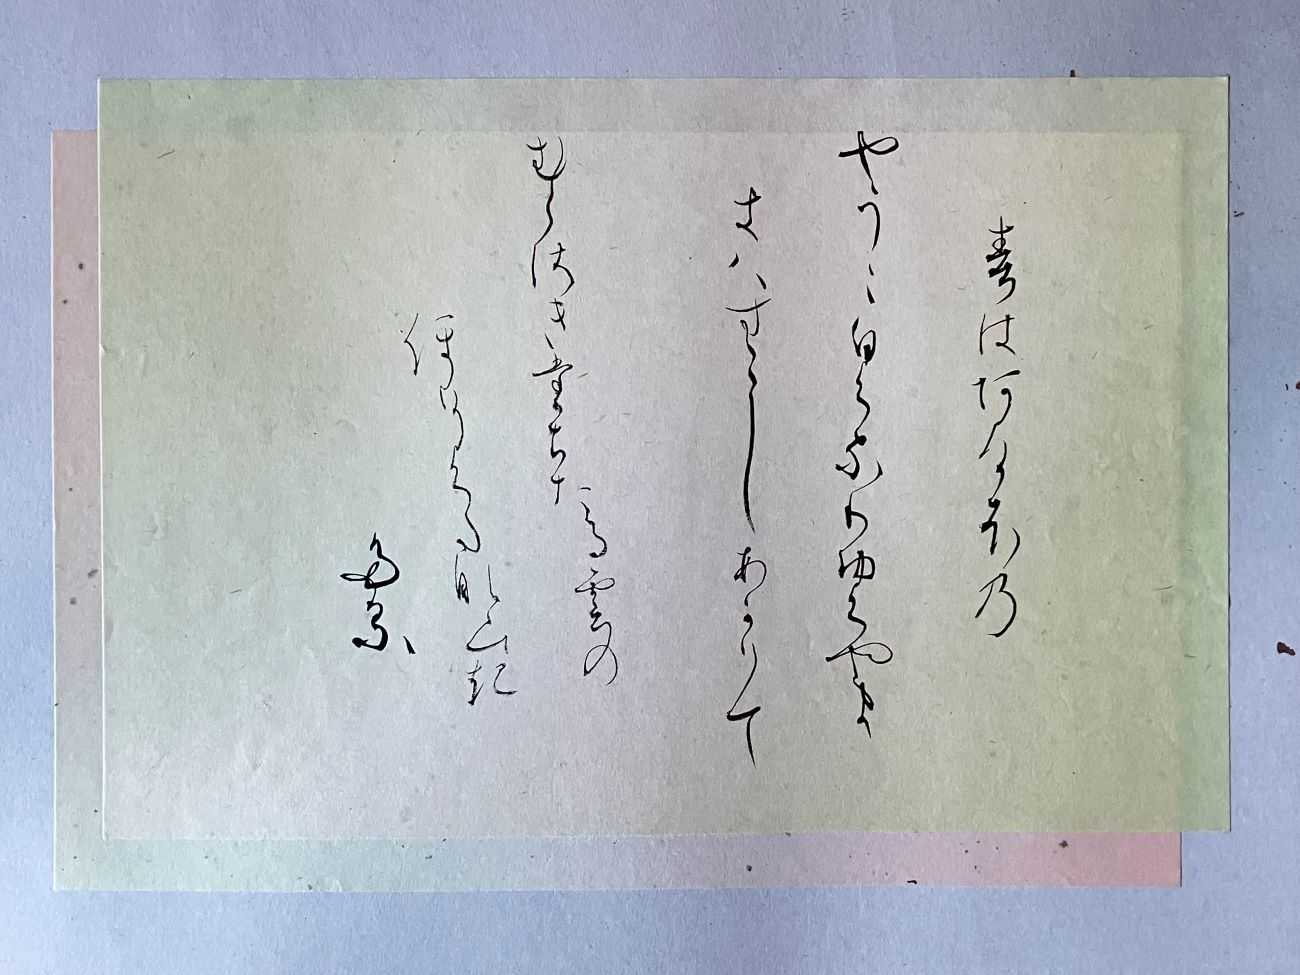 春はあけほの
やうゝ白くなりゆくやま
きはすこしあかりて
むらさきたちた
る雲の
ほそくたなひき
たる